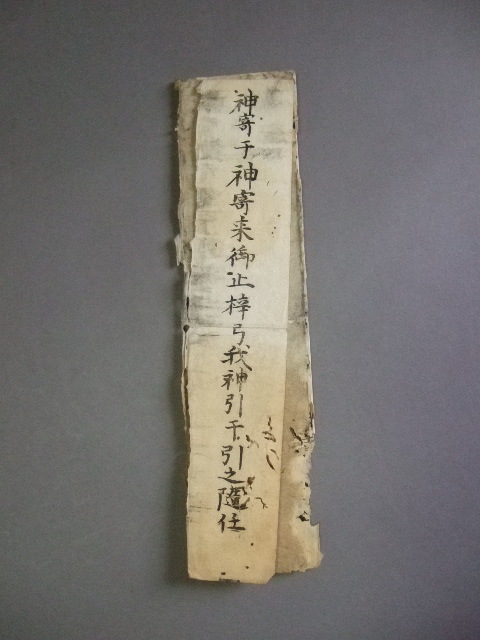 神寄于神寄来御止梓弓我神引干引之隨任